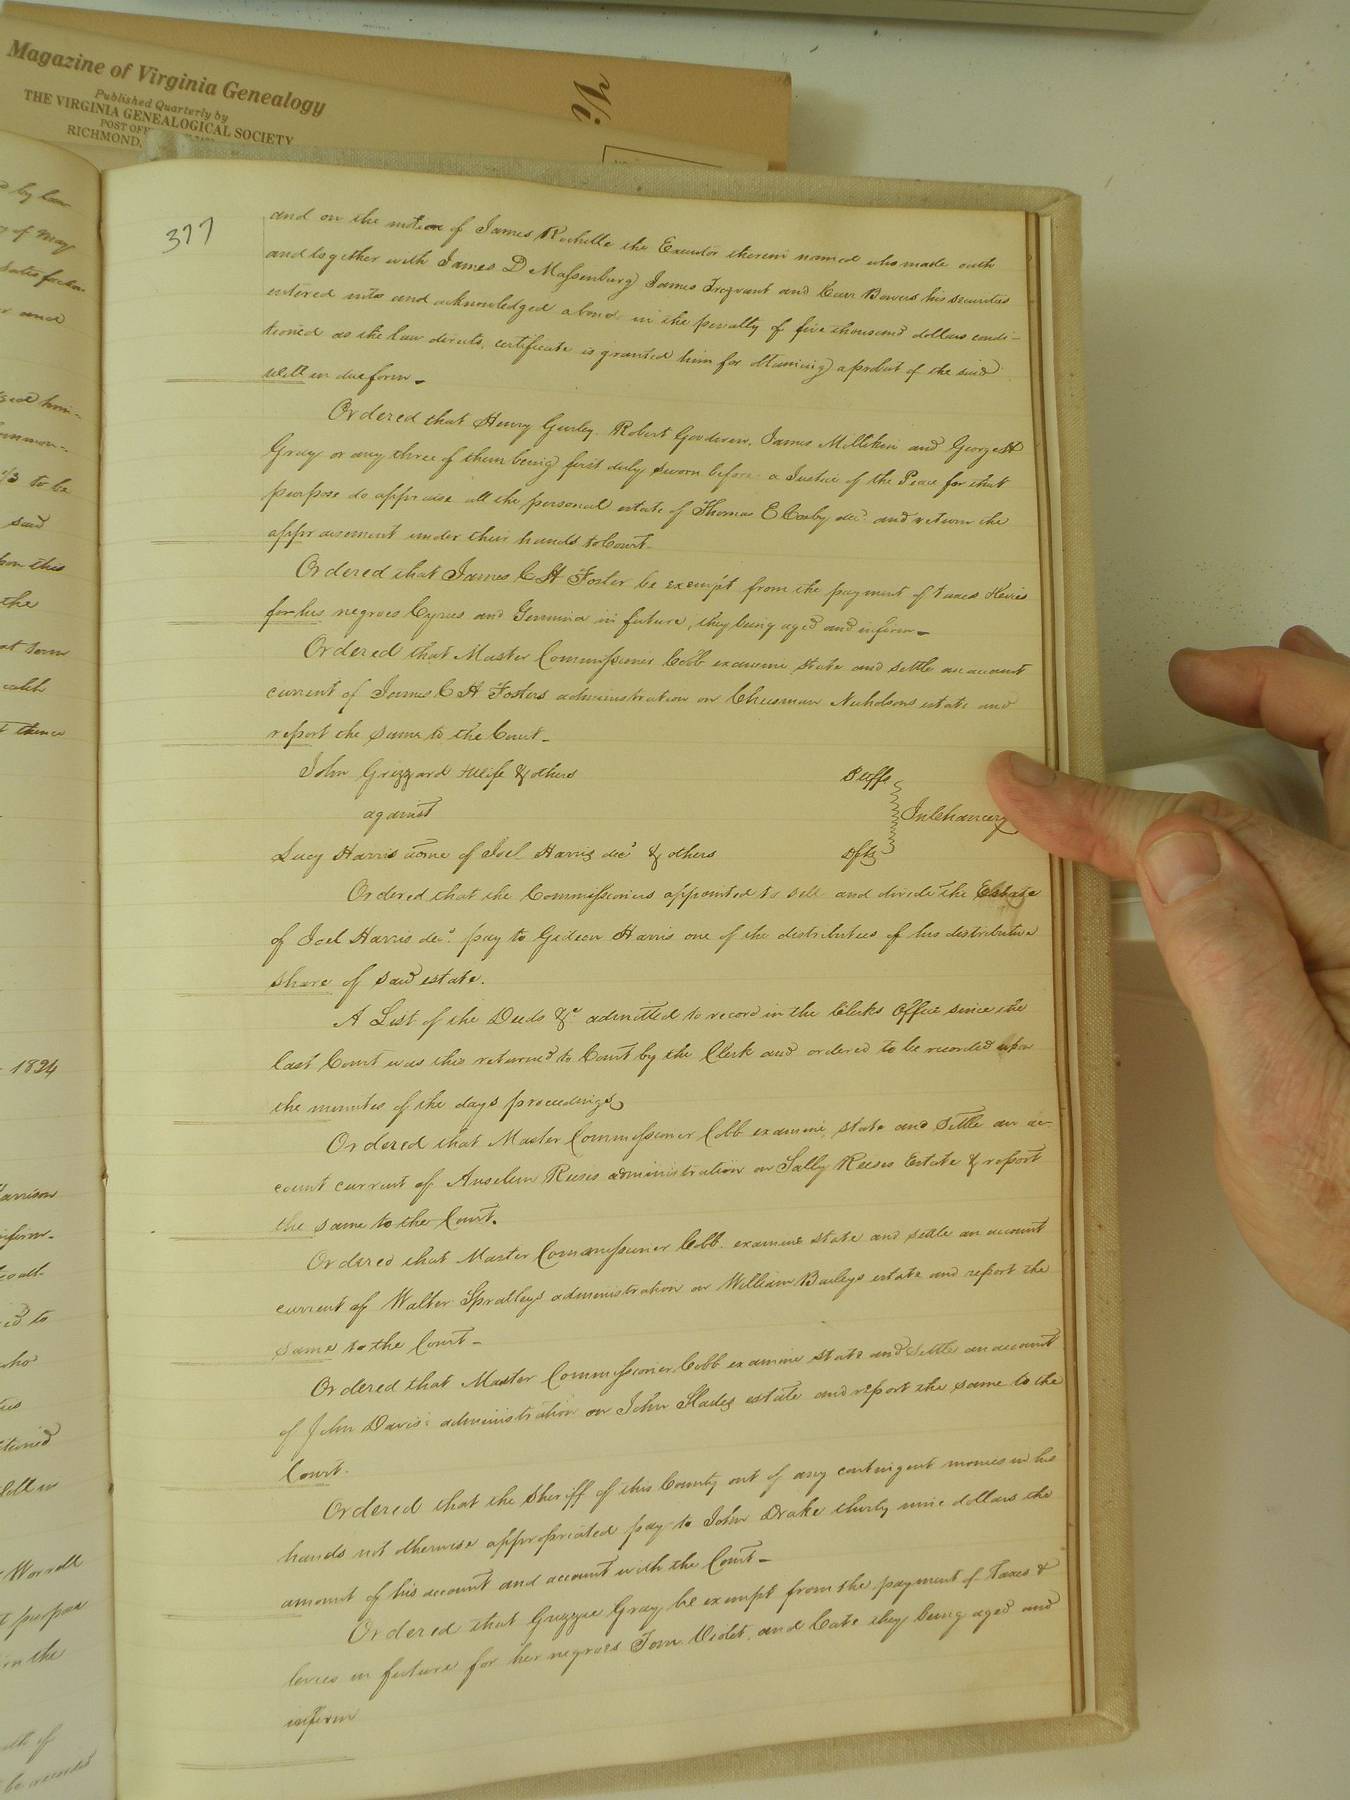 Magazine of Virginia Genealogy
Published Quarterly by
THE VIRGINIA GENEALOGICAL SOCIETY
POST OFF
RICHMOND,
Vi
377
and on the motion of James Rochelle the Executor therein named who made oath
and together with James D Massenburg James Trezvant and Carr Bowers his securities
entered into and acknowledged a bond in the penalty of five thousand dollars condi-
tioned as the law directs, certificate is granted him for obtaining a probat of the said
will in due form.
Ordered that Henry Gurley. Robert Goodwin, James Millikin and George H
Gray or any three of them being first duly sworn before a Justice of the Peace for that
purpose do appraise all the personal estate of Thomas E Cosby decd. and return the
appraisement under their hands to Court.
Ordered that James C H Foster be exempt from the payment of taxes &levies
for his negroes Cyrus and Gemima in future, they being aged and infirm.
Ordered that Master Commissioner Cobb examine state and settle an account
current of James C H Fosters administration on Chusman Nicholsons estate and
report the same to the Court.
John Grizzard &wife & others Pltffs
against In Chancery
Lucy Harris admx of Joel Harris decd & others Dfts
Ordered that the Commissioners appointed to sell and divide the Estate
of Joel Harris decd. pay to Gideon Harris one of the distributees of his distributive
share of said estate.
A List of the Deeds &c admitted to record in the Clerks Office since the
last Court was this returned to Court by the Clerk and ordered to be recorded upon
the minutes of the days proceedings
Ordered that Master Commissioner Cobb examine, state and settle an ac-
count current of Anselm Reeses administration on Sally Reeses Estate & report
the same to the Court.
Ordered that Master Commissioner Cobb. examine state and settle an account
current of Walter Spratleys administration on William Baileys estate and report the
same to the Court-
Ordered that Master Commissioner Cobb examine state and settle an account
of John Davis's administration on John Slades estate and report the same to the
Court.
Ordered that the Sheriff of this County out of any contingent monies in his
hands not otherwise appropriated pay to John Drake thirty nine dollars the
amount of his account and account with the Court-
Ordered that Grizzie Gray be exempt from the payment of Taxes &
levies in future for her negroes Tom Violet, and Cate they being aged and
infirm